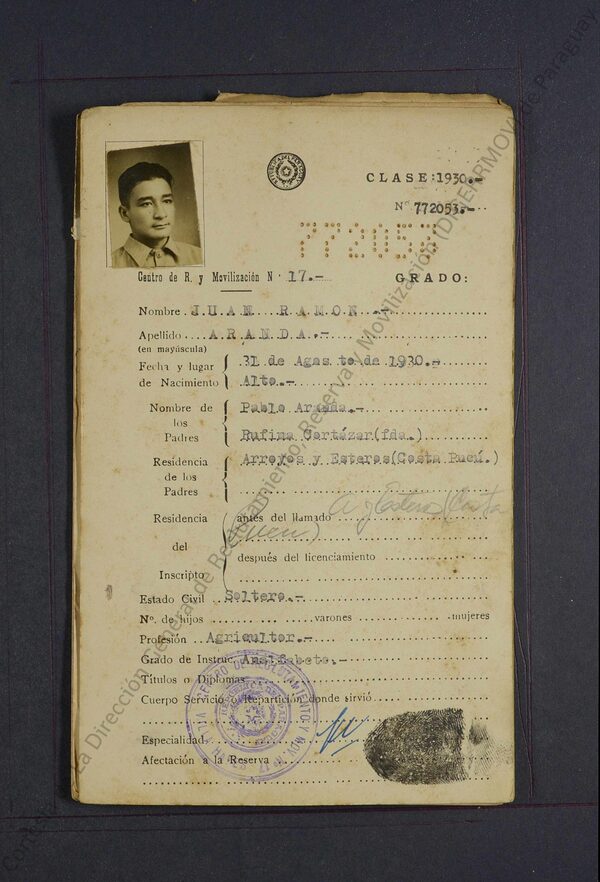 REPUBLICA DEL PARAGUAY
CLASE: 1930.-
Nº 772053.-
772053
Centro de R. y Movilización Nº 17.-
GRADO:
Nombre JUAN RAMON.-
Apellido ARANDA.-
(en mayúscula)
Fecha y lugar de Nacimiento 31 de Agosto de 1930.-
Alto.-
Nombre de los Padres Pablo Aranda.-
Rufina Cortázar(fda.)
Residencia de los Padres Arroyos y Esteros(Costa Pucú.)
Residencia del Inscripto antes del llamado A y Esteros (Costa
después del licenciamiento
Estado Civil Soltero.-
Nº. de hijos varones mujeres
Profesión Agricultor.-
Grado de Instruc. Analfabeto.-
Títulos o Diplomas
Cuerpo Servicio o Repartición donde sirvió
Especialidad
Afectación a la Reserva
La Dirección General de Reclutamiento, Reserva y Movilización
de Paraguay